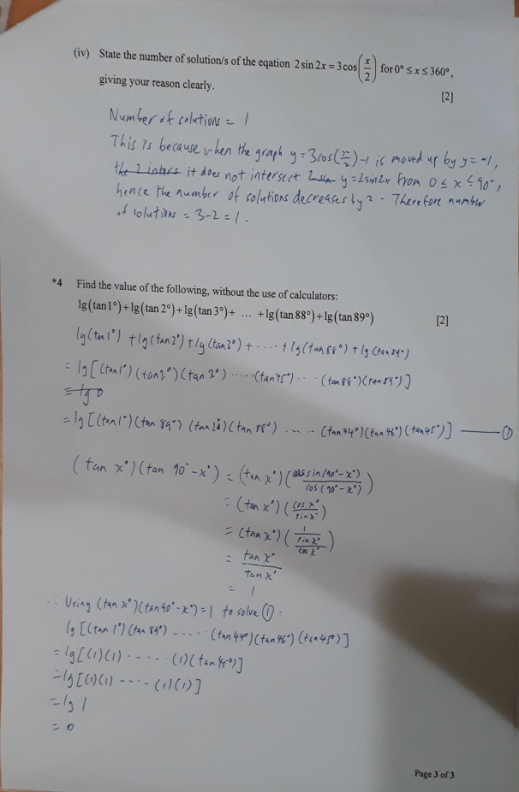 (iv) State the number of solution/s of the eqation 2 sin 2x = 3cos(x/2) for 0° ≤ x ≤ 360°,
giving your reason clearly.
[2]
Number of solutions = 1
This is because when the graph y = 3cos(x/2)-1 is moved up by y = -1,
the 2 inters it does not intersect 2sin y = 2sin2x from 0 ≤ x ≤ 90°,
hence the number of solutions decreases by 2. Therefore number
of solutions = 3-2 = 1.
*4 Find the value of the following, without the use of calculators:
lg(tan 1°) + lg(tan 2°) + lg(tan 3°) + ... + lg(tan 88°) + lg(tan 89°)
[2]
lg(tan1°) + lg(tan2°) + lg(tan3°) + ..... + lg(tan88°) + lg(tan89°)
= lg[(tan1°)(tan2°)(tan3°).....(tan45°).....(tan88°)(tan89°)]
= lg 0
= lg[(tan1°)(tan89°)(tan2°)(tan88°).....(tan44°)(tan46°)(tan45°)] — ①
(tan x°)(tan 90°-x°) = (tan x°)(sin(90°-x°)/cos(90°-x°))
= (tan x°)(cos x°/sin x°)
= (tan x°)(1/(sin x°/cos x°))
= tan x°/tan x°
= 1
∴ Using (tan x°)(tan 90°-x°) = 1 to solve ①:
lg[(tan1°)(tan89°).....(tan44°)(tan46°)(tan45°)]
= lg[(1)(1).....(1)(tan45°)]
= lg[(1)(1)....(1)(1)]
= lg 1
= 0
Page 3 of 3